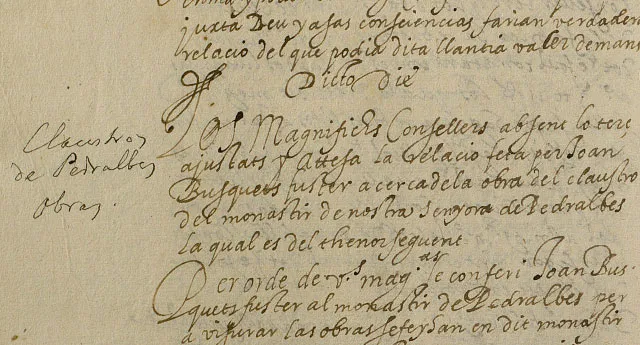 juxta Deu y a sas consciencias farian verdadera
relacio del que podia dita llantia valer deman
Dicto die
Claustro
de Pedralbes
obras.
Los Magnifichs Consellers absent lo terc
ajustats y Attesa la relacio feta per Joan
Busquets fuster acerca de la obra del claustro
del monastir de nostra senyora de Pedralbes
la qual es del thenor seguent
Per orde de v.s mag.as se conferi Joan Bus-
quets fuster al monastir de Pedralbes per
a visurar las obras se feyan en dit monastir